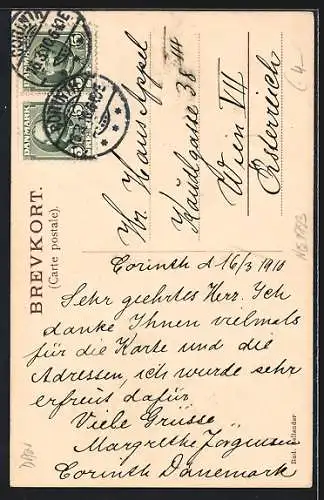 BREVKORT.
(Carte postale).
DANMARK
DANMARK
Hr Hans Appel
Kandlgasse 38
Wien VII
Österreich
Corinth d 16/3 1910
Sehr geehrtes Herz. Ich
danke Ihnen vielmals
für die Karte und die
Adressen, ich wurde sehr
erfreut dafür
Viele Grüsse
Margrethe Jörgensen
Corinth Dänemark